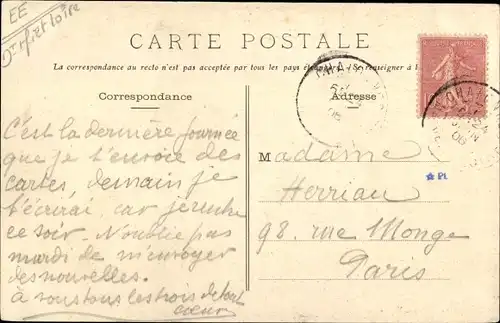 EE
CARTE POSTALE
La correspondance au recto n'est pas acceptée par tous les pays (Se renseigner à
Correspondance
Adresse
C'est la dernière journée
que je t'envoie des
cartes, demain je
t'écrirai, car je rentre
ce soir. N'oublie pas
mardi de m'envoyer
des nouvelles.
à vous tous les trois de tout
coeur
Madame
Herriau
98, rue Monge
Paris
Pt.